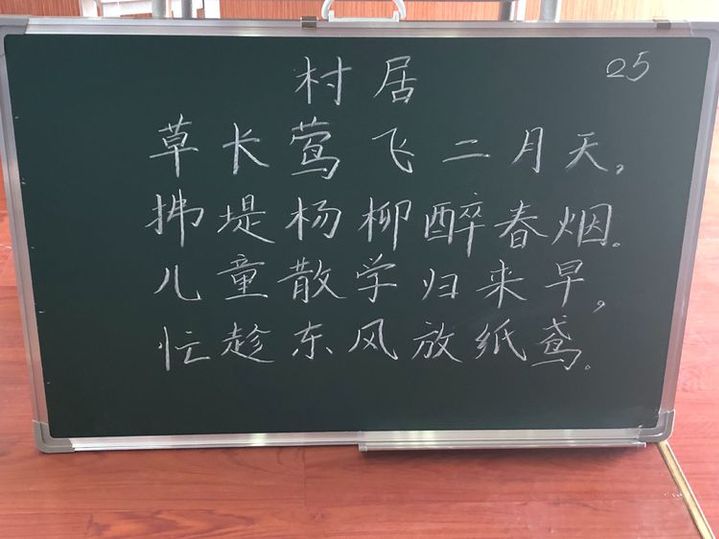 村居
25
草长莺飞二月天,
拂堤杨柳醉春烟.
儿童散学归来早,
忙趁东风放纸鸢.